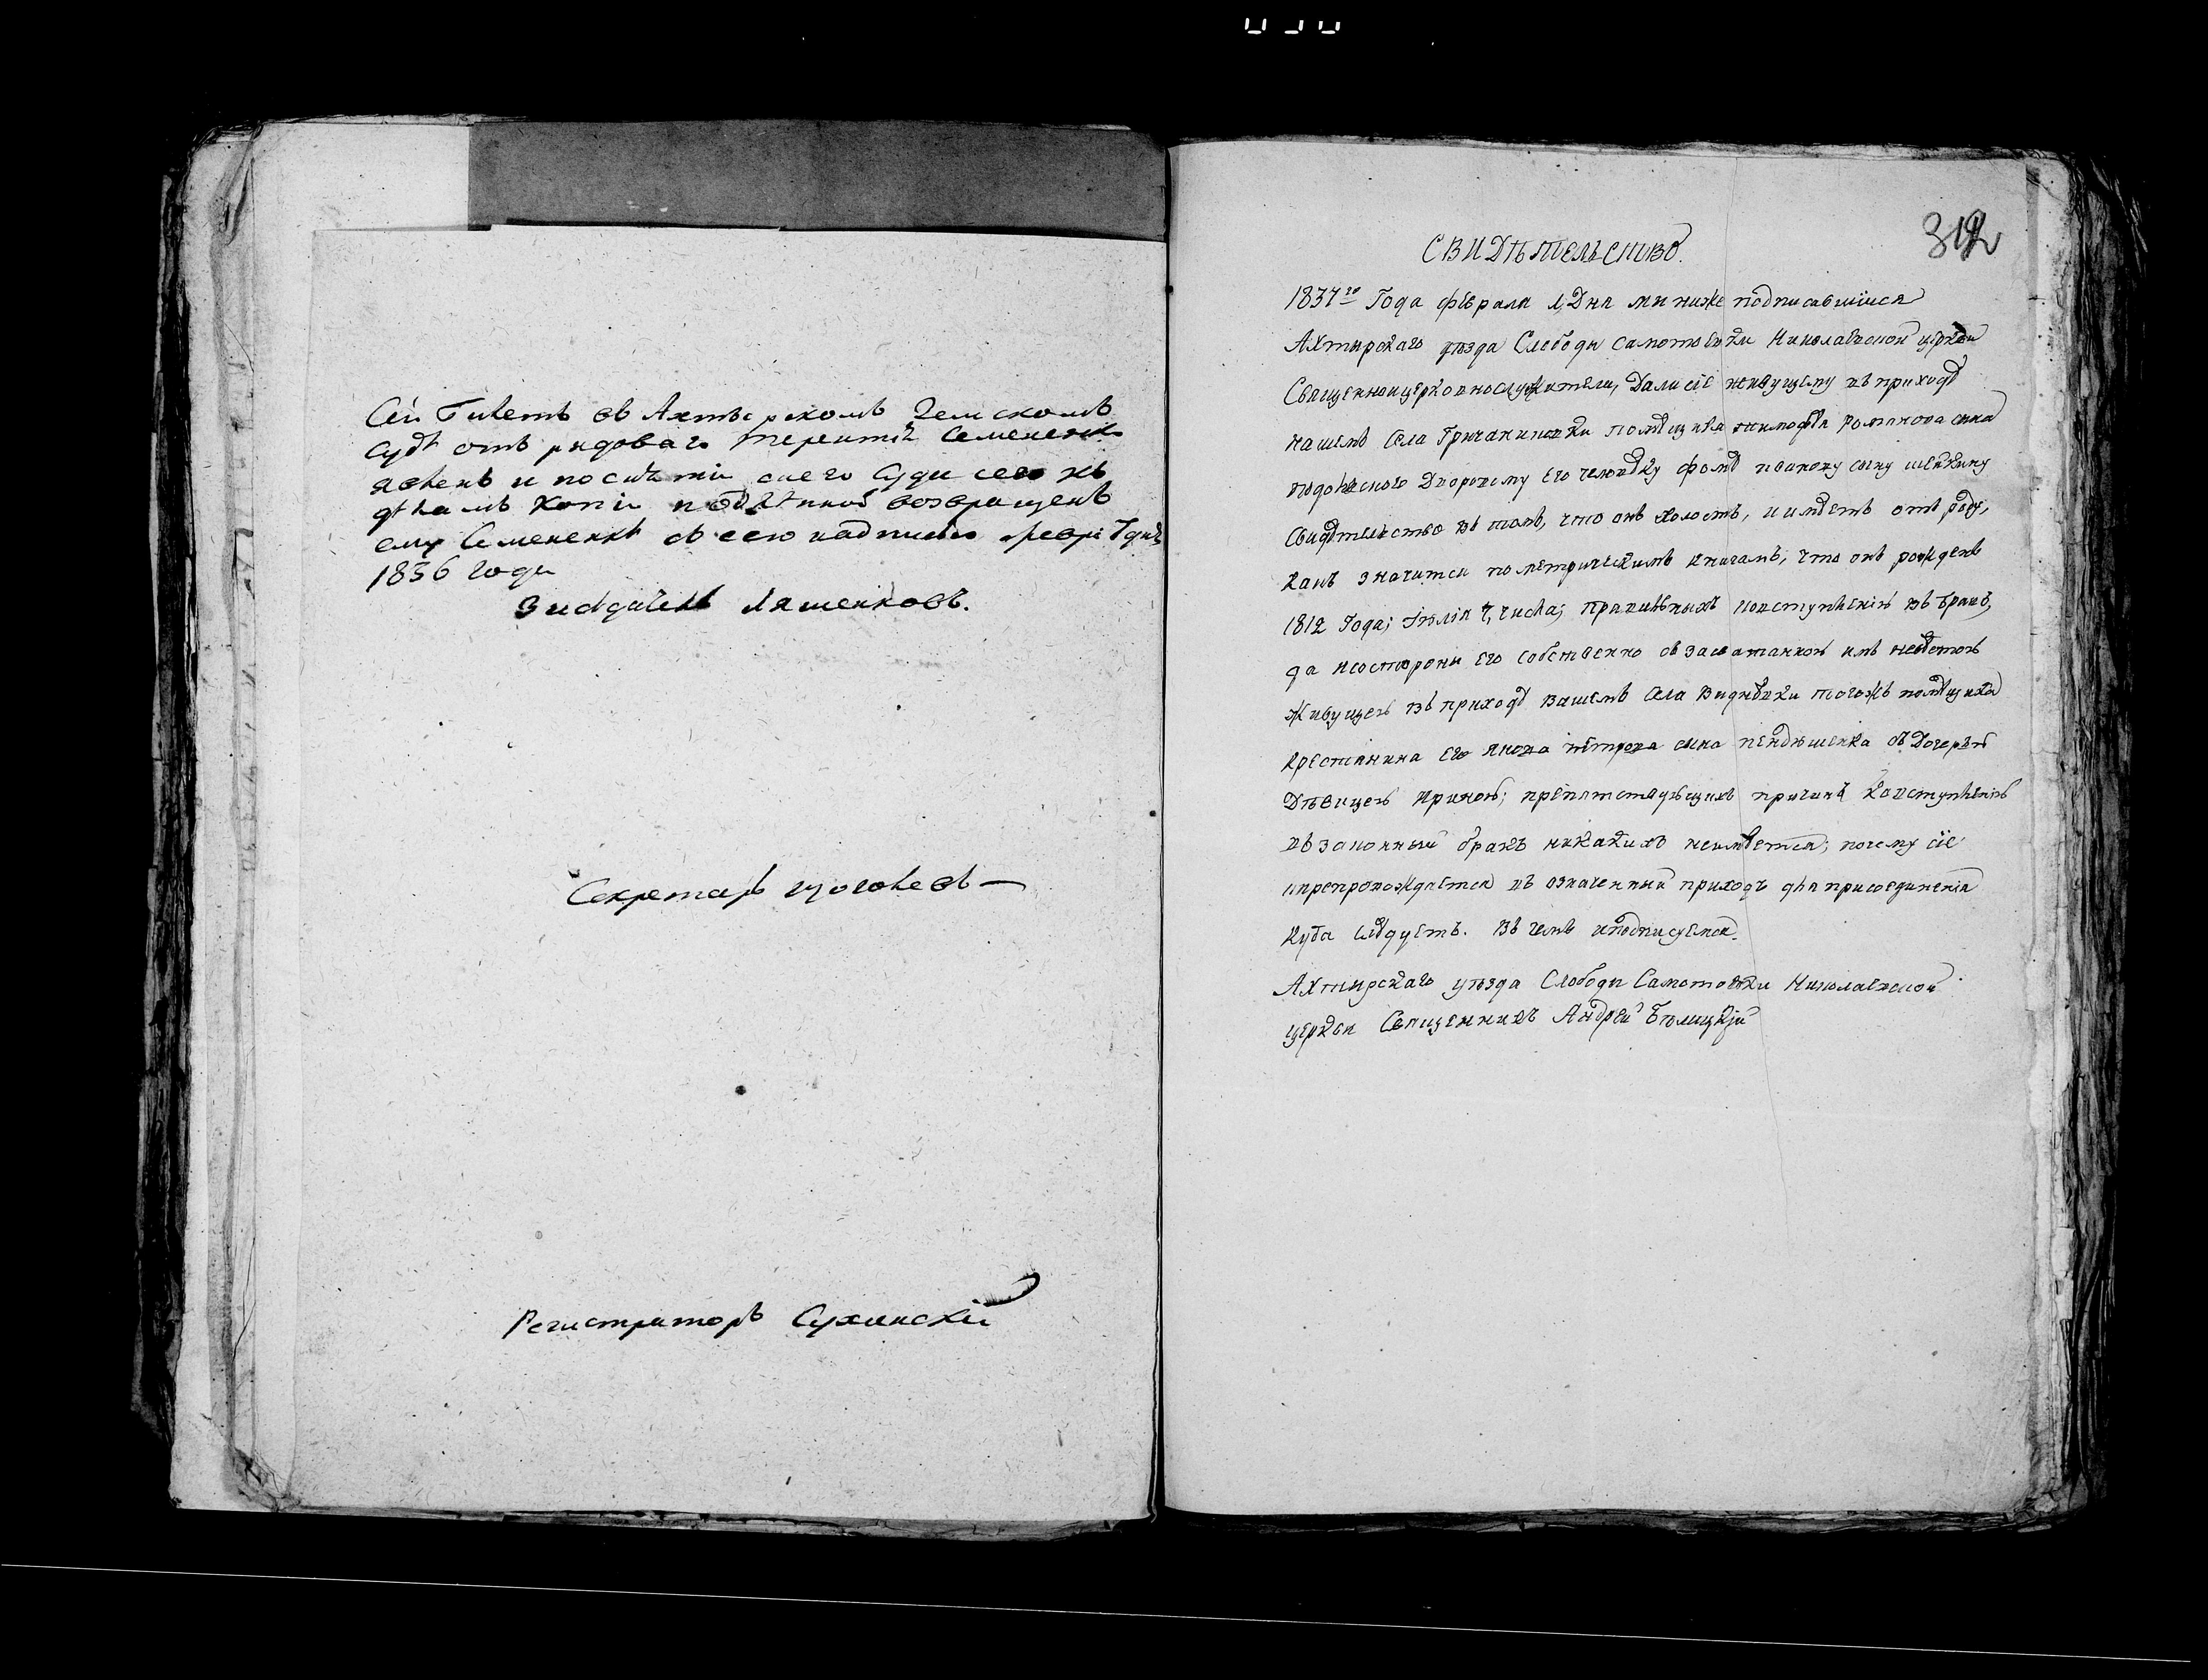 Сей билетъ въ Ахтырскомъ Земскомъ
Судѣ отъ рядоваго Терентія Семененка
явленъ и по снятіи съ него Суда сего къ
дѣламъ Копіи подлѣнной возвращенъ
ему Семененкѣ съ сею надписью февр: 7 дня
1836 года
Засѣдатель Ляшенковъ.
Секретарь
Регистраторъ Сухинскій
312
СВИДѢТЕЛЬСТВО.
1837го Года февраля 1, Дня мы ниже подписавшіися
Ахтырскаго уѣзда Слободы Самотоевки Николаевской церкви
Священноицерковнослужители, Дали сіе живущему въ приходѣ
нашемъ Села Гричаникивки помѣщика тимофѣя романова сына
Дворовому его человѣку фомѣ иванову сыну
Свидѣтельство въ томъ, что онъ холостъ, и имѣетъ отъ роду,
какъ значится по метрическимъ книгамъ, что онъ рожденъ
1812 Года; Іюлія числа; правильныхъ
да и состороны его собственно съ засватанною имъ невѣстою
Живущею въ приходѣ вашемъ села Видновки тогожъ помѣщика
крестянина его якова петрова сына съ Дочерью
Дѣвицею Ириною; препятствующихъ причинъ ковступленію
въ законный бракъ никакихъ неимѣется; почему сіе
ипрепровождается въ означенный приходъ для присоединенія
куда слѣдуетъ. Въ чемъ иподписуемся.
Ахтырскаго уѣзда Слободы Самотоевки Николаевской
церкви Священникъ Андрей Бѣлицкій